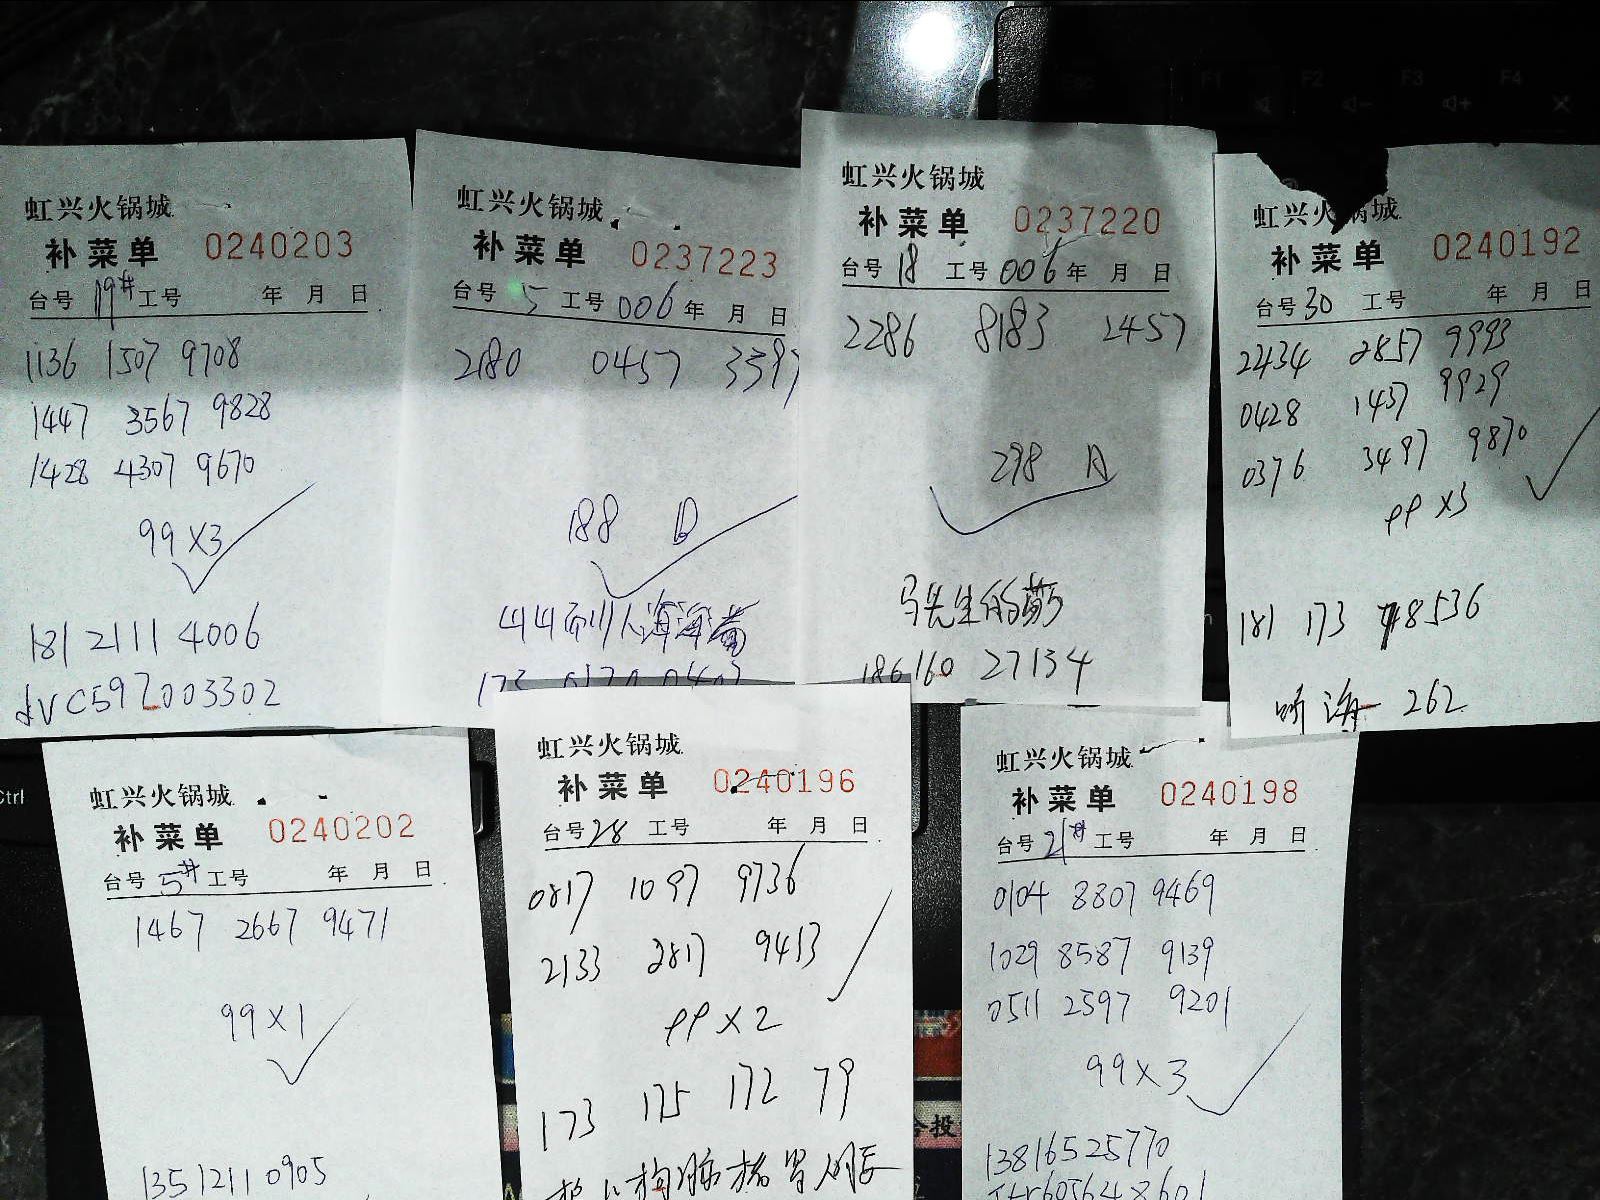 虹兴火锅城
补菜单 0240203
台号 19# 工号 年 月 日
1136 1507 9708
1447 3567 9828
1428 4307 9670
99 X3
181 2111 4006
dVC597003302
虹兴火锅城
补菜单 0237223
台号 5 工号 006 年 月 日
2180 0457 3397
188 B
虹兴火锅城
补菜单 0237220
台号 18 工号 006 年 月 日
2286 8183 2457
298 A
马先生的
186160 27134
虹兴火锅城
补菜单 0240192
台号 30 工号 年 月 日
2434 2857 9993
0428 1457 9929
0376 3497 9870
99 X3
181 173 8536
海 262
虹兴火锅城
补菜单 0240202
台号 5# 工号 年 月 日
1467 2667 9471
99 X1
13512110905
虹兴火锅城
补菜单 0240196
台号 28 工号 年 月 日
0817 1097 9736
2133 2817 9413
99 X 2
173 175 172 79
虹兴火锅城
补菜单 0240198
台号 21# 工号 年 月 日
0104 8807 9469
1029 8587 9139
0511 2597 9201
99 X 3
13816525770
Ctrl
F1 F2 F3 F4